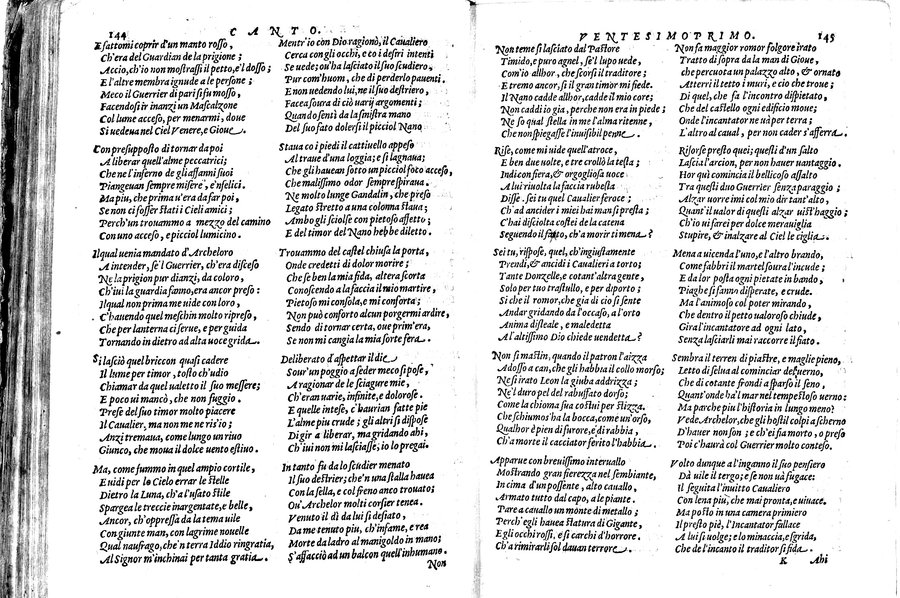 144
CANTO.
E fattomi coprir d'un manto rosso,
Ch'era del Guardian de la prigione;
Accio, ch'io non mostrassi il petto, e'l dosso;
E l'altre membra ignude a le persone;
Meco il Guerrier di pari si fu mosso,
Facendosi ir inanzi un Mascalzone
Col lume acceso, per menarmi, doue
Si uedeua nel Ciel Venere, e Gioue.
Con presupposto di tornar da poi
A liberar quell'alme peccatrici;
Che ne l'inferno de gli affanni suoi
Piangeuan sempre misere, e'nfelici.
Ma piu, che prima u'era da far poi,
Se non ci fosser stati i Cieli amici;
Perch'un trouammo a mezzo del camino
Con uno acceso, e picciol lumicino.
Ilqual uenia mandato d'Archeloro
A intender, se'l Guerrier, ch'era disceso
Ne la prigion pur dianzi, da coloro,
Ch'iui la guardia fanno, era ancor preso:
Ilqual non prima me uide con loro,
C'hauendo quel meschin molto ripreso,
Che per lanterna ci serue, e per guida
Tornando in dietro ad alta uoce grida.
Si lasciò quel briccon quasi cadere
Il lume per timor, tosto ch'udio
Chiamar da quel ualetto il suo messere;
E poco ui mancò, che non fuggio.
Prese del suo timor molto piacere
Il Caualier, ma non me ne ris'io;
Anzi tremaua, come lungo un riuo
Giunco, che moua il dolce uento estiuo.
Ma, come fummo in quel ampio cortile,
E uidi per lo Cielo errar le stelle
Dietro la Luna, ch'a l'usato stile
Spargea le treccie inargentate, e belle,
Ancor, ch'oppressa da la tema uile
Con giunte man, con lagrime nouelle
Qual naufrago, che'n terra Iddio ringratia,
Al Signor m'inchinai per tanta gratia.
Mentr'io con Dio ragionò, il Caualiero
Cerca con gli occhi, e co i desiri intenti
Se uede; ou'ha lasciato il suo scudiero,
Pur com'huom, che di perderlo pauenti.
E non uedendo lui, ne il suo destriero,
Facea foura di ciò uarij argomenti;
Quando sentì da la sinistra mano
Del suo fato dolersi il picciol Nano
Staua co i piedi il cattiuello appeso
Al traue d'una loggia; e si lagnaua;
Che gli hauean sotto un picciol foco acceso,
Che malissimo odor sempre spiraua.
Ne molto lunge Gandalin, che preso
Legato stretto a una colonna staua;
Ambo gli sciolse con pietoso affetto;
E del timor del Nano hebbe diletto.
Trouammo del castel chiusa la porta,
Onde credetti di dolor morire;
Che se ben la mia fida, altera scorta
Conoscendo a la faccia il mio martire,
Pietoso mi consola, e mi conforta;
Non può conforto alcun porgermi ardire,
Sendo di tornar certa, oue prim'era,
Se non mi cangia la mia sorte fera.
Deliberato d'aspettar il die
Sour'un poggio a seder meco si pose,
A ragionar de le sciagure mie,
Ch'eran uarie, infinite, e dolorose.
E quelle intese, c'haurian fatte pie
L'alme piu crude; gli altri si dispose
Di gir a liberar, ma gridando ahi,
Ch'iui non mi lasciasse, io lo pregai.
In tanto fu da lo scudier menato
Il suo destrier; che'n una stalla hauea
Con la sella, e col freno anco trouato;
Ou'Archelor molti corsier tenea.
Venuto il dì da lui sì desiato,
Da me tenuto piu, ch'infame, e rea
Morte da ladro al manigoldo in mano;
S'affacciò ad un balcon quell'inhumano.
Non
VENTESIMOPRIMO.
145
Non teme si lasciato dal Pastore
Timido, e puro agnel, se'l lupo uede,
Com'io allhor, che scorsi il traditore;
E tremo ancor, sì il gran timor mi fiede.
Il Nano cadde allhor, cadde il mio core;
Non caddi io già, perche non era in piede;
Ne so qual stella in me l'alma ritenne,
Che non spiegasse l'inuisibil penne.
Rise, come mi uide quell'atroce,
E ben due uolte, e tre crollò la testa;
Indi con fiera, & orgogliosa uoce
A lui riuolta la faccia rubesta
Disse. sei tu quel Caualier feroce;
Ch'ad ancider i miei hai man sì presta;
C'hai disciolta costei de la catena
Seguendo il fato, ch'a morir ti mena?
Sei tu, rispose, quel, ch'ingiustamente
Prendi, & ancidi i Caualieri a torto;
Tante Donzelle, e cotant'altra gente,
Solo per tuo trastullo, e per diporto;
Sì che il romor, che gia di ciò si sente
Andar gridando da l'occaso, a l'orto
Anima disleale, e maledetta
A l'altissimo Dio chiede uendetta?
Non si mastin, quando il patron l'aizza
Adosso a can, che gli habbia il collo morso;
Ne sì irato Leon la giuba addrizza;
Ne'l duro pel del rabuffato dorso;
Come la chioma sua costui per stizza.
Che schiumos'ha la bocca, come un'orso,
Qualhor è pien di furore, e di rabbia,
Ch'a morte il cacciator ferito l'habbia.
Apparue con breuissimo interuallo
Mostrando gran fierezza nel sembiante,
In cima d'un possente, alto cauallo,
Armato tutto dal capo, a le piante.
Pare a cauallo un monte di metallo;
Perch'egli hauea statura di Gigante,
E gli occhi rossi, e sì carchi d'horrore.
Ch'a rimirarli sol dauan terrore.
Non fa maggior romor folgore irato
Tratto di sopra da la man di Gioue,
Che percuota un palazzo alto, & ornato
Atterri il tetto i muri, e ciò che troue;
Di quel, che fa l'incontro dispietato,
Che del castello ogni edificio moue;
Onde l'incantator ne uà per terra;
L'altro al caual, per non cader s'afferra.
Risorse presto quei; questi d'un salto
Lascia l'arcion, per non hauer uantaggio.
Hor quì comincia il bellicoso assalto
Tra questi duo Guerrier senza paraggio;
Alzar uorre imi col mio dir tant'alto,
Quant'il ualor di questi alzar uist'haggio;
Ch'io ui farei per dolce merauiglia
Stupire, & inalzare al Ciel le ciglia.
Mena a uicenda l'uno, e l'altro brando,
Come fabbri il martel soura l'incude;
E da lor posta ogni pietate in bando,
Piaghe si fanno disperate, e crude.
Ma l'animoso col poter mirando,
Che dentro il petto ualoroso chiude,
Gira l'incantator ad ogni lato,
Senza lasciarli mai raccorre il fiato.
Sembra il terren di piastre, e maglie pieno,
Letto di selua al cominciar del uerno,
Che di cotante frondi a sparso il seno,
Quant'onde ha'l mar nel tempestoso uerno:
Ma perche piu l'historia in lungo meno?
Vede Archelor, che gli hostil colpi a scherno
D'hauer non son; e ch'ei fia morto, o preso
Poi c'haurà col Guerrier molto conteso.
Volto dunque a l'inganno il suo pensiero
Dà uile il tergo; e se non uà fugace:
Il seguita l'inuitto Caualiero
Con lena piu, che mai pronta, e uiuace.
Ma posto in una camera primiero
Il presto piè, l'Incantator fallace
A lui si uolge; e lo minaccia, e sgrida,
Che de l'incanto il traditor si fida.
K
Ahi